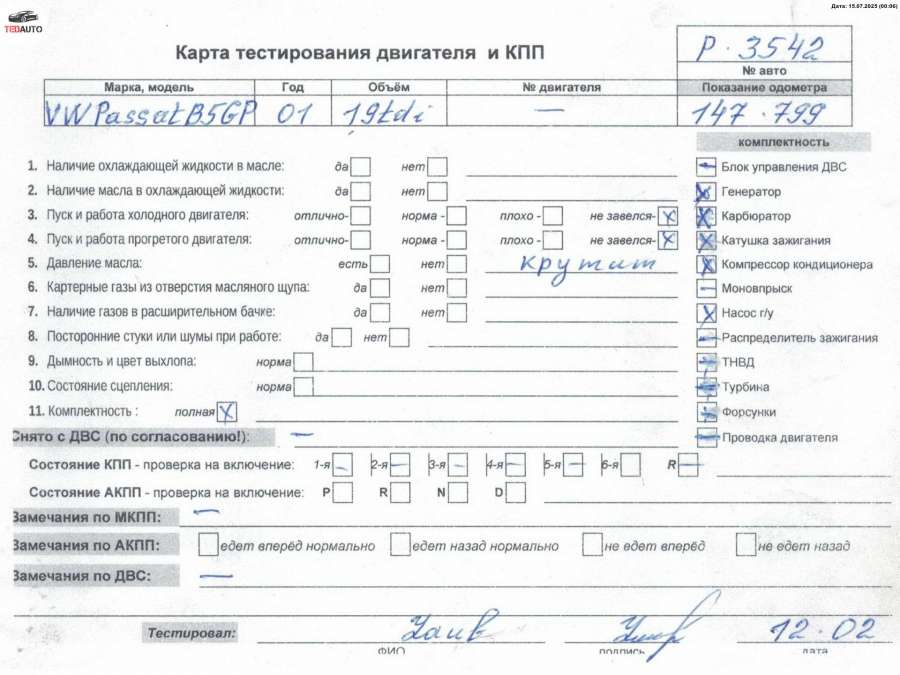 Дата: 15.07.2025 (00:06)
TEDAUTO
Карта тестирования двигателя и КПП
Р. 3542
№ авто
Марка, модель Год Объём № двигателя Показание одометра
VW Passat B5GP 01 19tdi — 147.799
комплектность
1. Наличие охлаждающей жидкости в масле: да нет
Блок управления ДВС
2. Наличие масла в охлаждающей жидкости: да нет
Генератор
3. Пуск и работа холодного двигателя: отлично- норма - плохо - не завелся- x
Карбюратор
4. Пуск и работа прогретого двигателя: отлично- норма - плохо - не завелся- x
Катушка зажигания
5. Давление масла: есть нет крутит
Компрессор кондиционера
6. Картерные газы из отверстия масляного щупа: да нет
Моновпрыск
7. Наличие газов в расширительном бачке: да нет
Насос г/у
8. Посторонние стуки или шумы при работе: да нет
Распределитель зажигания
9. Дымность и цвет выхлопа: норма
ТНВД
10. Состояние сцепления: норма
Турбина
11. Комплектность : полная x
Форсунки
Снято с ДВС (по согласованию!): —
Проводка двигателя
Состояние КПП - проверка на включение: 1-я 2-я 3-я 4-я 5-я 6-я R
Состояние АКПП - проверка на включение: P R N D
Замечания по МКПП: —
Замечания по АКПП: едет вперёд нормально едет назад нормально не едет вперёд не едет назад
Замечания по ДВС: —
Тестировал: 12.02
ФИО подпись дата